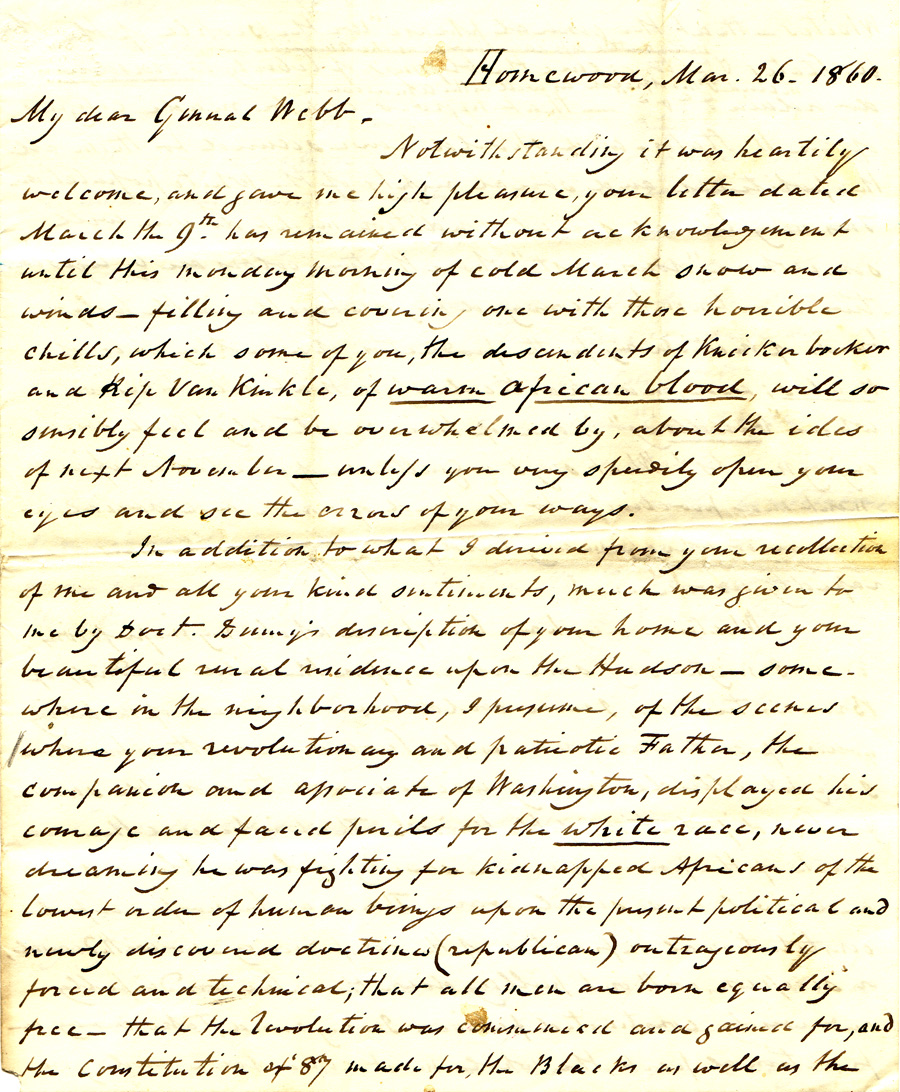 Homewood, Mar. 26 - 1860.
My dear General Webb.
Notwithstanding it was heartily
welcome, and gave me high pleasure, your letter dated
March the 9th. has remained without acknowledgement
until this monday morning of cold March snow and
winds - filling and covering one with those horrible
chills, which some of you, the descendents of Knickerbocker
and Rip Van Kinkle, of warm African blood, will so
sensibly feel and be overwhelmed by, about the ides
of next November - unless you very speedily open your
eyes and see the errors of your ways.
In addition to what I derived from your recollection
of me and all your kind sentiments, much was given to
me by Doct. description of your home and your
beautiful rural residence upon the Hudson - some-
where in the neighborhood, I presume, of the scenes
where your revolutionary and patriotic Father, the
companion and associate of Washington, displayed his
courage and faced perils for the white race, never
dreaming he was fighting for kidnapped Africans of the
lowest order of human beings upon the present political and
newly discovered doctrine (republican) outrageously
forced and technical; that all men are born equally
free - that the Revolution was commenced and gained for, and
the Constitution of '87 made for, the Blacks as well as the